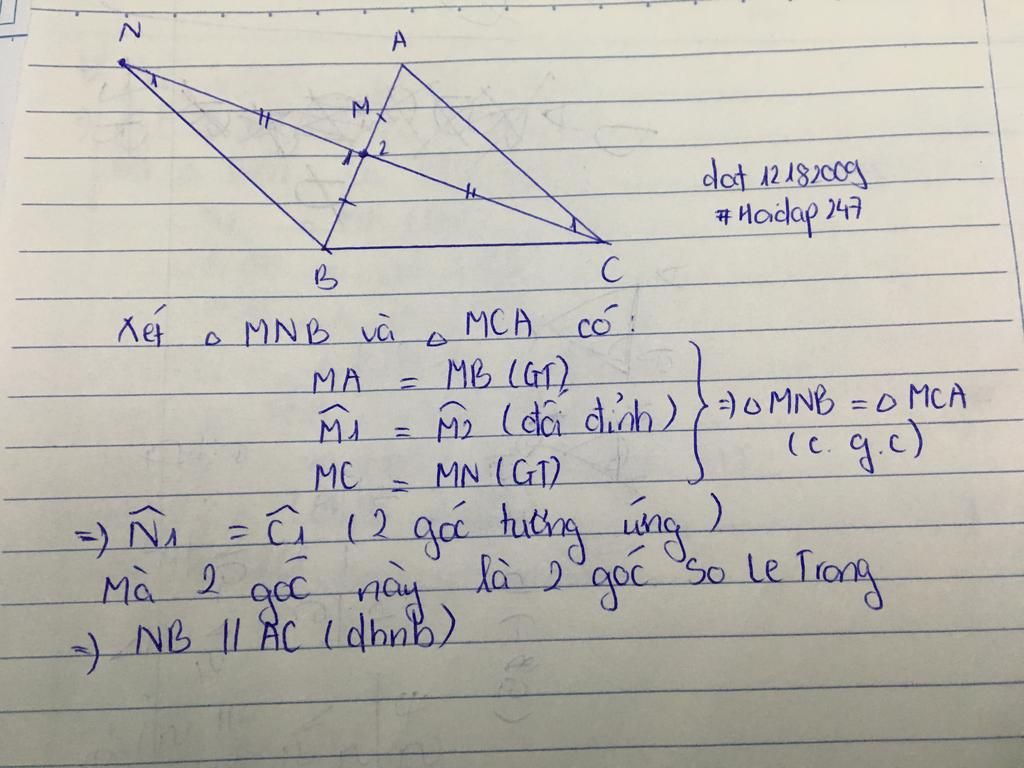 N
A
1
M
1 2
1
B
C
dat 12182009
#Hoidap247
Xét △ MNB và △ MCA có:
MA = MB (GT)
M̂1 = M̂2 (đối đỉnh)
MC = MN (GT)
=> △ MNB = △ MCA
(c.g.c)
=> N̂1 = Ĉ1 (2 góc tương ứng)
Mà 2 góc này là 2 góc so le Trong
=> NB // AC (dhnb)